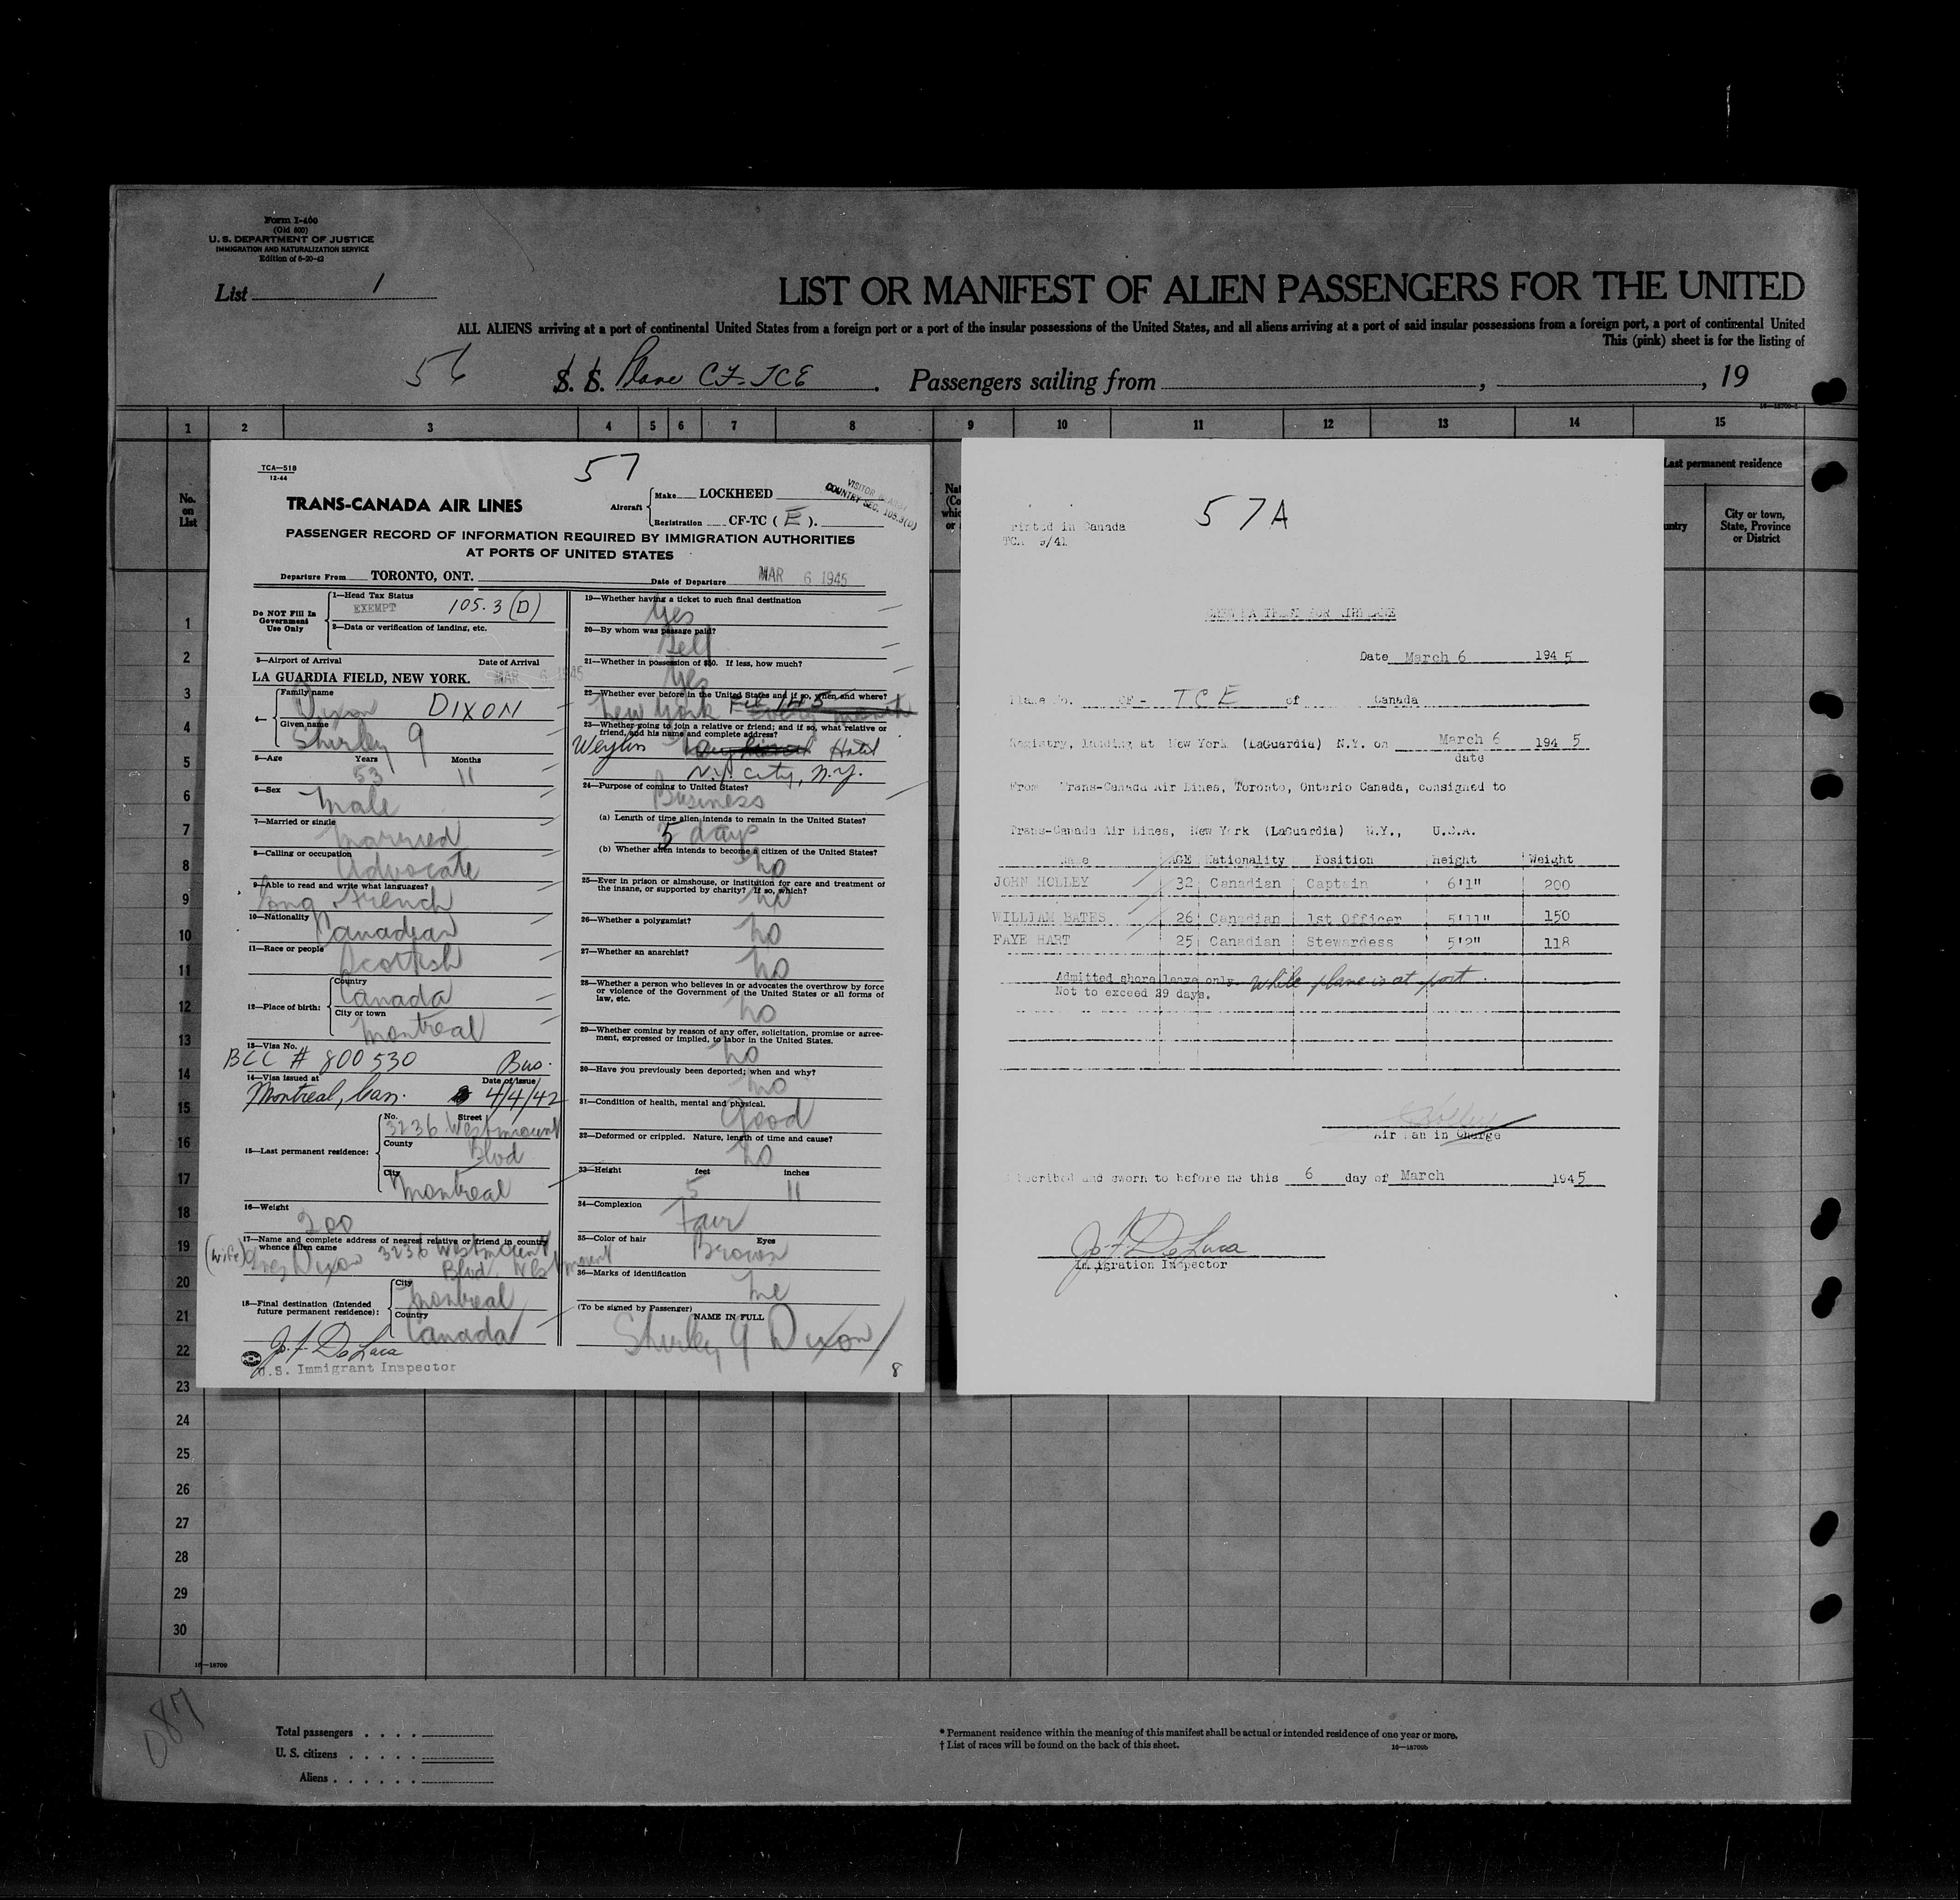 Form I-400
(Old 500)
U. S. DEPARTMENT OF JUSTICE
IMMIGRATION AND NATURALIZATION SERVICE
Edition of 6-20-43
List 1
LIST OR MANIFEST OF ALIEN PASSENGERS FOR THE UNITED
ALL ALIENS arriving at a port of continental United States from a foreign port or a port of the insular possessions of the United States, and all aliens arriving at a port of said insular possessions from a foreign port, a port of continental United
This (pink) sheet is for the listing of
56 S. S. Plane CF-TCE . Passengers sailing from , , 19
1 2 3 4 5 6 7 8 9 10 11 12 13 14 15
No. on List
Last permanent residence
City or town, State, Province or District
TCA—518
12-44
57
TRANS-CANADA AIR LINES
Aircraft Make LOCKHEED
Registration CF-TC ( E ).
VISITOR
COUNTRY SEC. 105.3(D)
PASSENGER RECORD OF INFORMATION REQUIRED BY IMMIGRATION AUTHORITIES
AT PORTS OF UNITED STATES
Departure From TORONTO, ONT. Date of Departure MAR 6 1945
Do NOT Fill In Government Use Only
1—Head Tax Status
EXEMPT 105.3 (D)
2—Data or verification of landing, etc.
3—Airport of Arrival Date of Arrival
LA GUARDIA FIELD, NEW YORK. MAR 6 1945
4— Family name
Dixon DIXON
Given name
Shirley G
5—Age Years Months
53 11
6—Sex
Male
7—Married or single
Married
8—Calling or occupation
Advocate
9—Able to read and write what languages?
Eng. French
10—Nationality
Canadian
11—Race or people
Scottish
12—Place of birth: Country
Canada
City or town
Montreal
13—Visa No.
BCC # 800530 Bus.
14—Visa issued at Date of issue
Montreal, Can. 4/4/42
15—Last permanent residence: No. Street
3236 Westmount
County
Blvd
City
Montreal
16—Weight
200
17—Name and complete address of nearest relative or friend in country whence alien came
(wife) Dixon 3236 Westmount
Blvd. Westmount
18—Final destination (Intended future permanent residence): City
Montreal
Country
Canada
Jo. F. De Luca
U.S. Immigrant Inspector
19—Whether having a ticket to such final destination
Yes
20—By whom was passage paid?
Self
21—Whether in possession of $50. If less, how much?
Yes
22—Whether ever before in the United States and if so, when and where?
New York Feb 145 every month
23—Whether going to join a relative or friend; and if so, what relative or friend, and his name and complete address?
Weylin Hotel
N.Y. City, N.Y.
24—Purpose of coming to United States?
Business
(a) Length of time alien intends to remain in the United States?
5 days
(b) Whether alien intends to become a citizen of the United States?
no
25—Ever in prison or almshouse, or institution for care and treatment of the insane, or supported by charity? If so, which?
no
26—Whether a polygamist?
no
27—Whether an anarchist?
no
28—Whether a person who believes in or advocates the overthrow by force or violence of the Government of the United States or all forms of law, etc.
no
29—Whether coming by reason of any offer, solicitation, promise or agreement, expressed or implied, to labor in the United States.
no
30—Have you previously been deported; when and why?
no
31—Condition of health, mental and physical.
Good
32—Deformed or crippled. Nature, length of time and cause?
no
33—Height feet inches
5 11
34—Complexion
Fair
35—Color of hair Eyes
Brown
36—Marks of identification
(To be signed by Passenger)
NAME IN FULL
Shirley G Dixon
8
57A
Printed in Canada
TCA 9/41
Date March 6 1945
Plane No. CF - TCE of Canada
Registry, landing at New York (LaGuardia) N.Y. on March 6 1945
date
From Trans-Canada Air Lines, Toronto, Ontario Canada, consigned to
Trans-Canada Air Lines, New York (LaGuardia) N.Y., U.S.A.
Name AGE Nationality Position height Weight
JOHN HOLLEY 32 Canadian Captain 6'1" 200
WILLIAM BATES 26 Canadian 1st Officer 5'11" 150
FAYE HART 25 Canadian Stewardess 5'2" 118
Admitted shore leave only while plane is at port.
Not to exceed 29 days.
Air Man in Charge
Subscribed and sworn to before me this 6 day of March 1945
Jo. F. De Luca
Immigration Inspector
1
2
3
4
5
6
7
8
9
10
11
12
13
14
15
16
17
18
19
20
21
22
23
24
25
26
27
28
29
30
16—18709
087
Total passengers . . . .
U. S. citizens . . . . .
Aliens . . . . . .
* Permanent residence within the meaning of this manifest shall be actual or intended residence of one year or more.
† List of races will be found on the back of this sheet.
16—18709b